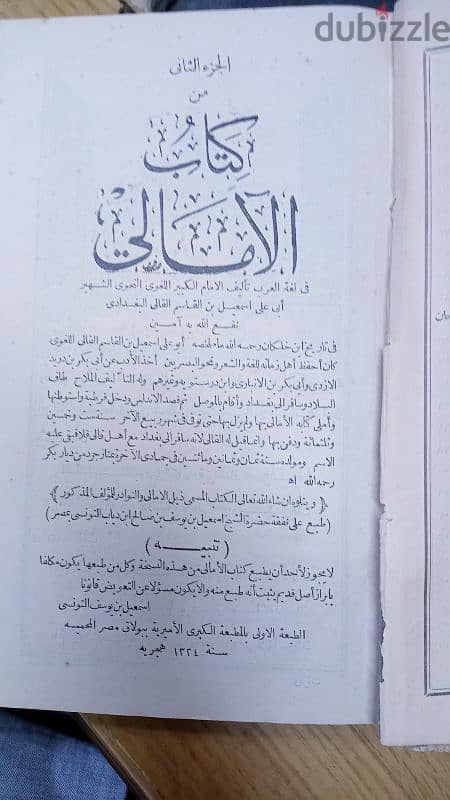 dubizzle
الجزء الثانى
من
كِتَابُ
الأمَالِىْ
فى لغة العرب تأليف الامام الكبير اللغوى النحوى الشهير
أبى على اسمعيل بن القاسم القالى البغدادى
نفع الله به آمين
فى تاريخ ابن خلكان رحمه الله ما ملخصه أبو على اسمعيل بن القاسم القالى اللغوى
كان أحفظ أهل زمانه للغة والشعر ونحو البصريين أخذ الأدب عن أبى بكر بن دريد
الازدى وأبى بكر بن الانبارى وابن درستويه وغيرهم وله التآليف الملاح طاف
البلاد وسافر الى بغداد وأقام بالموصل ثم قصد الاندلس ودخل قرطبة واستوطنها
وأملى كتابه الأمالى بها ولم يزل بها حتى توفى فى شهر ربيع الآخر سنة ست وخمسين
وثلثمائة ودفن بها وانما قيل له القالى لانه سافر الى بغداد مع أهل قالى قلا فبقى عليه
الاسم ومولده سنة ثمان وثمانين ومائتين فى جمادى الآخرة بمنازجرد من ديار بكر
رحمه الله اه
﴿ ويتلوه ان شاء الله تعالى الكتاب المسمى ذيل الامالى والنوادر للمؤلف المذكور ﴾
( طبع على نفقة حضرة الشيخ اسمعيل بن يوسف بن صالح ابن دياب التونسى بمصر )
( تنبيه )
لا يجوز لأحد أن يطبع كتاب الأمالى من هذه النسخة وكل من طبعها يكون مكلفا
بابراز أصل قديم يثبت أنه طبع منه والا يكون مسؤلا عن التعويض قانونا
اسمعيل بن يوسف التونسى
الطبعة الاولى بالمطبعة الكبرى الأميرية ببولاق مصر المحمية
سنة ١٣٢٤ هجرية